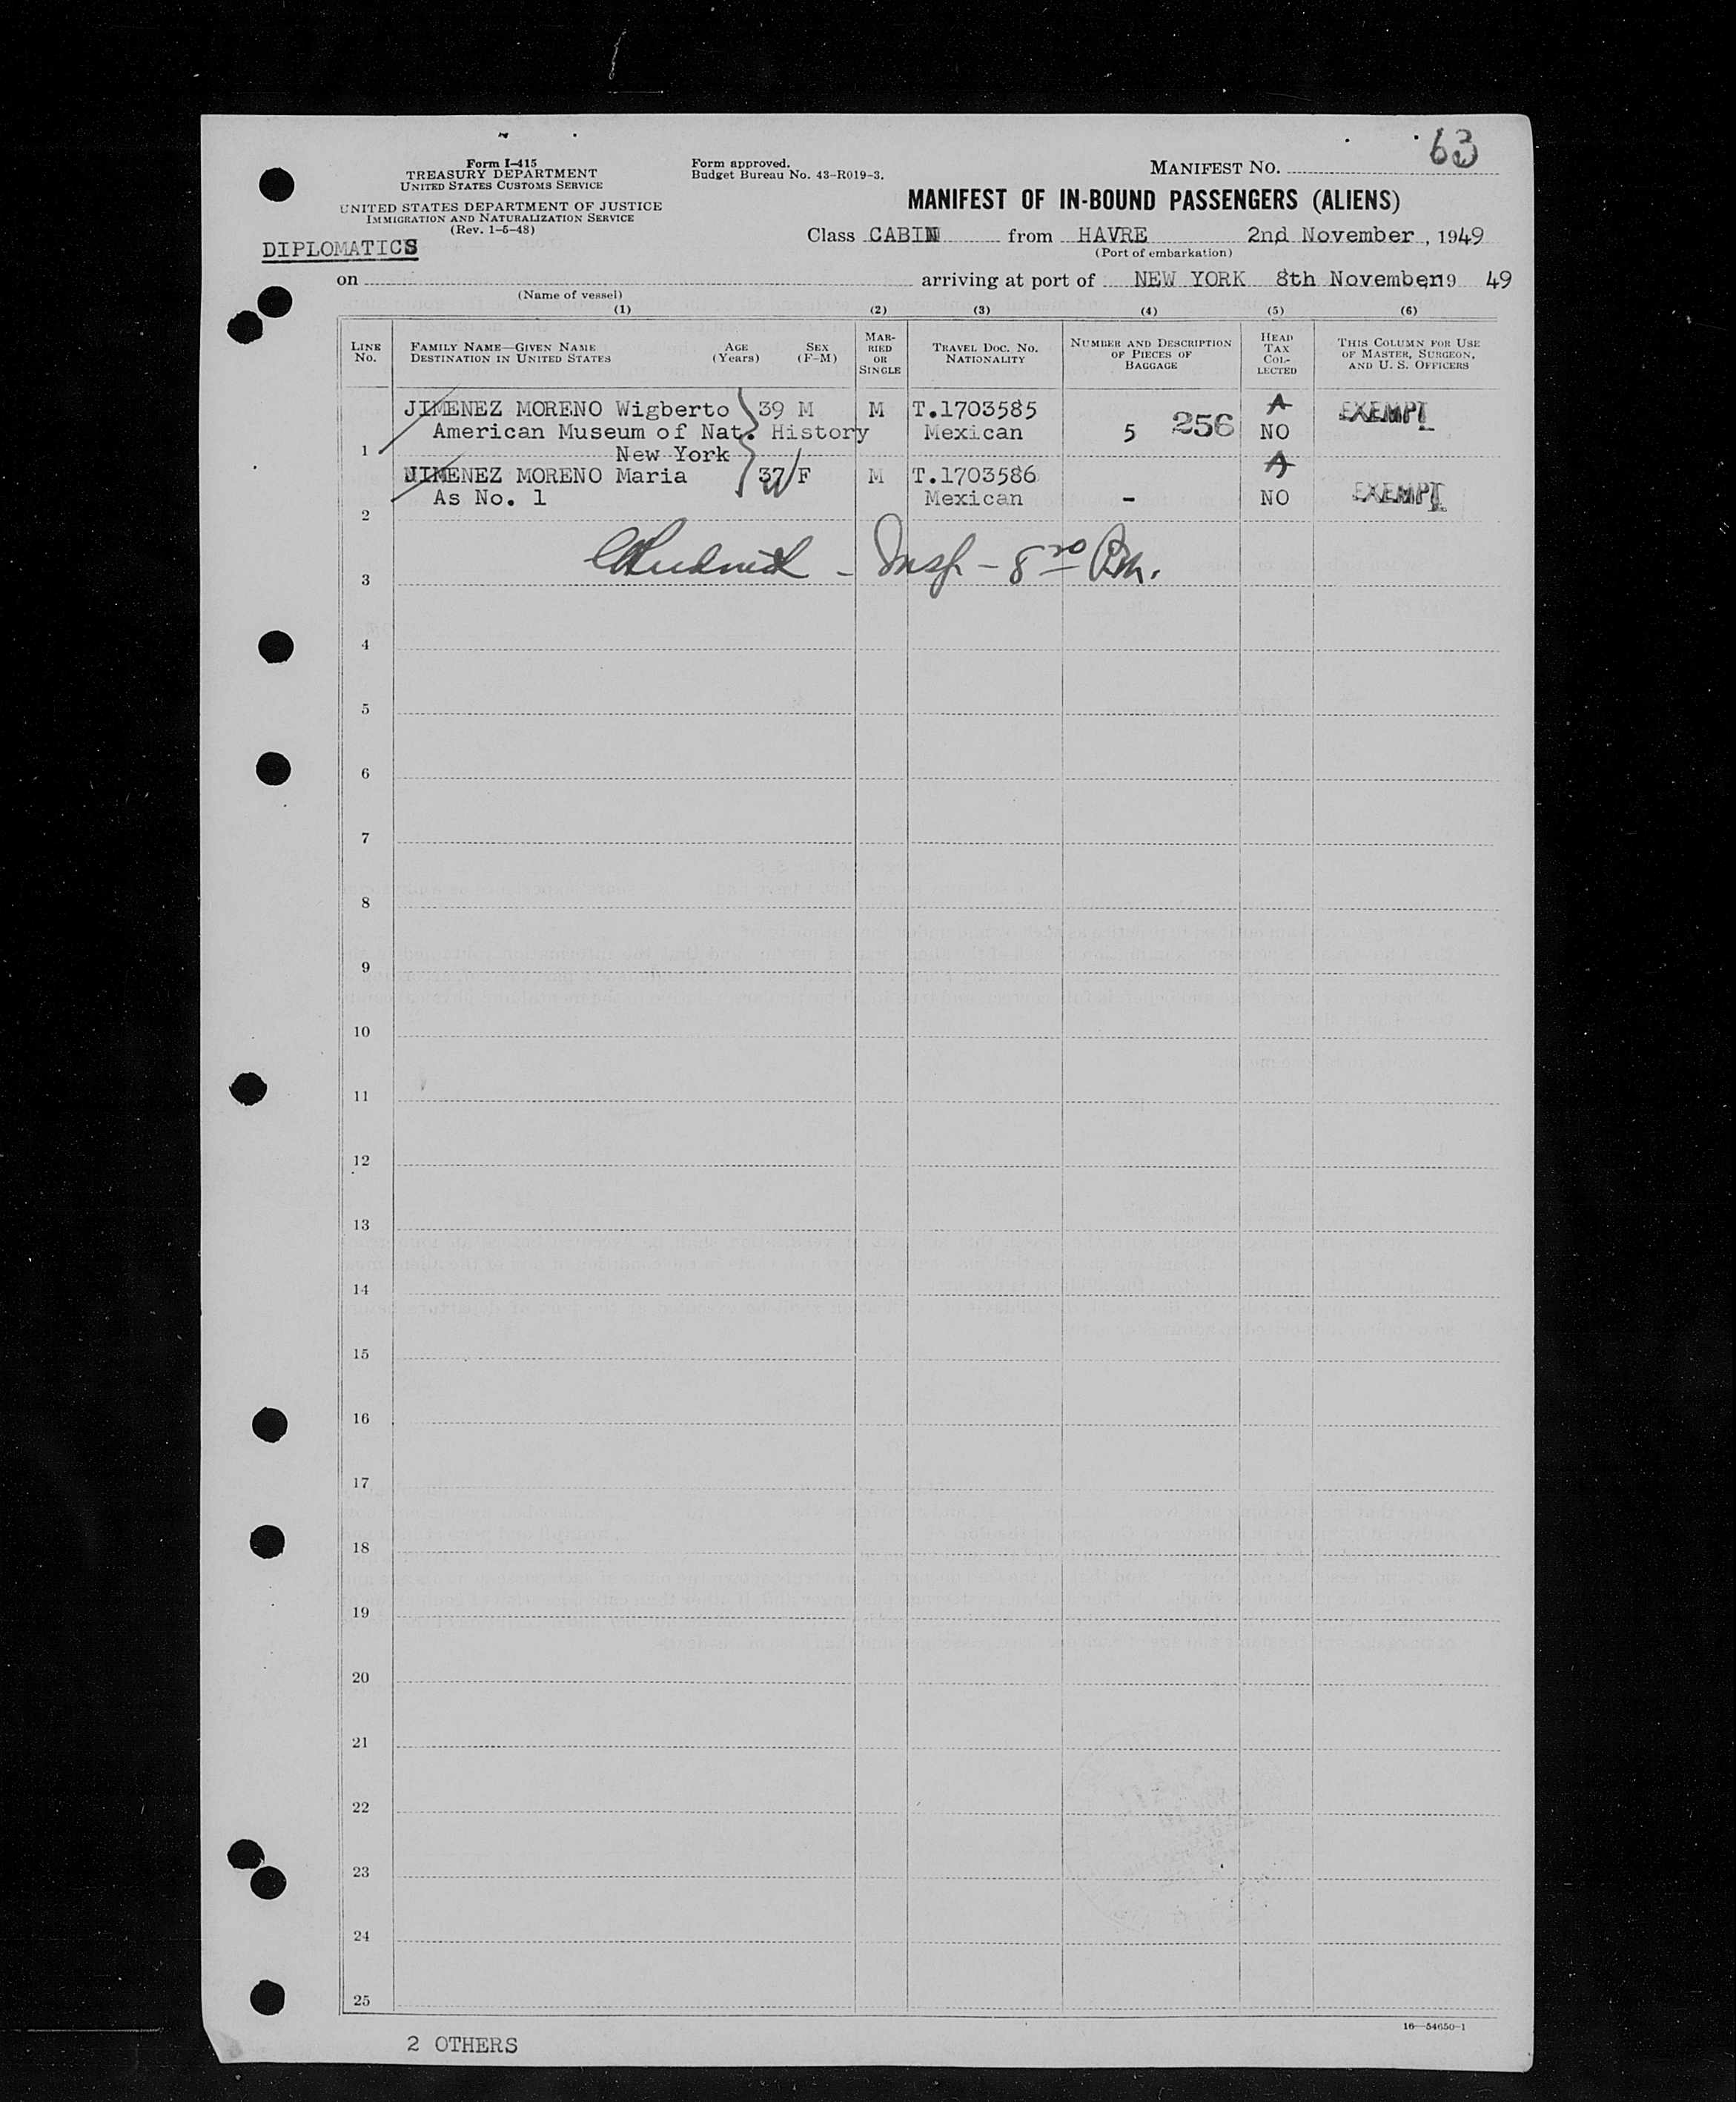 63
Form I-415
TREASURY DEPARTMENT
UNITED STATES CUSTOMS SERVICE
UNITED STATES DEPARTMENT OF JUSTICE
IMMIGRATION AND NATURALIZATION SERVICE
(Rev. 1-5-48)
Form approved.
Budget Bureau No. 43-R019-3.
MANIFEST NO.
MANIFEST OF IN-BOUND PASSENGERS (ALIENS)
DIPLOMATICS
Class CABIN from HAVRE 2nd November, 1949
(Port of embarkation)
on arriving at port of NEW YORK 8th November 19 49
(Name of vessel)
(1) (2) (3) (4) (5) (6)
LINE No.
FAMILY NAME—GIVEN NAME
DESTINATION IN UNITED STATES
AGE (Years)
SEX (F-M)
MARRIED OR SINGLE
TRAVEL DOC. NO. NATIONALITY
NUMBER AND DESCRIPTION OF PIECES OF BAGGAGE
HEAD TAX COLLECTED
THIS COLUMN FOR USE OF MASTER, SURGEON, AND U. S. OFFICERS
JIMENEZ MORENO Wigberto 39 M M T.1703585 A EXEMPT
American Museum of Nat. History Mexican 5 256 NO
1 New York
JIMENEZ MORENO Maria 37 F M T.1703586 A
As No. 1 Mexican - NO EXEMPT
2
- Insp - 8
3
4
5
6
7
8
9
10
11
12
13
14
15
16
17
18
19
20
21
22
23
24
25
16—54650-1
2 OTHERS